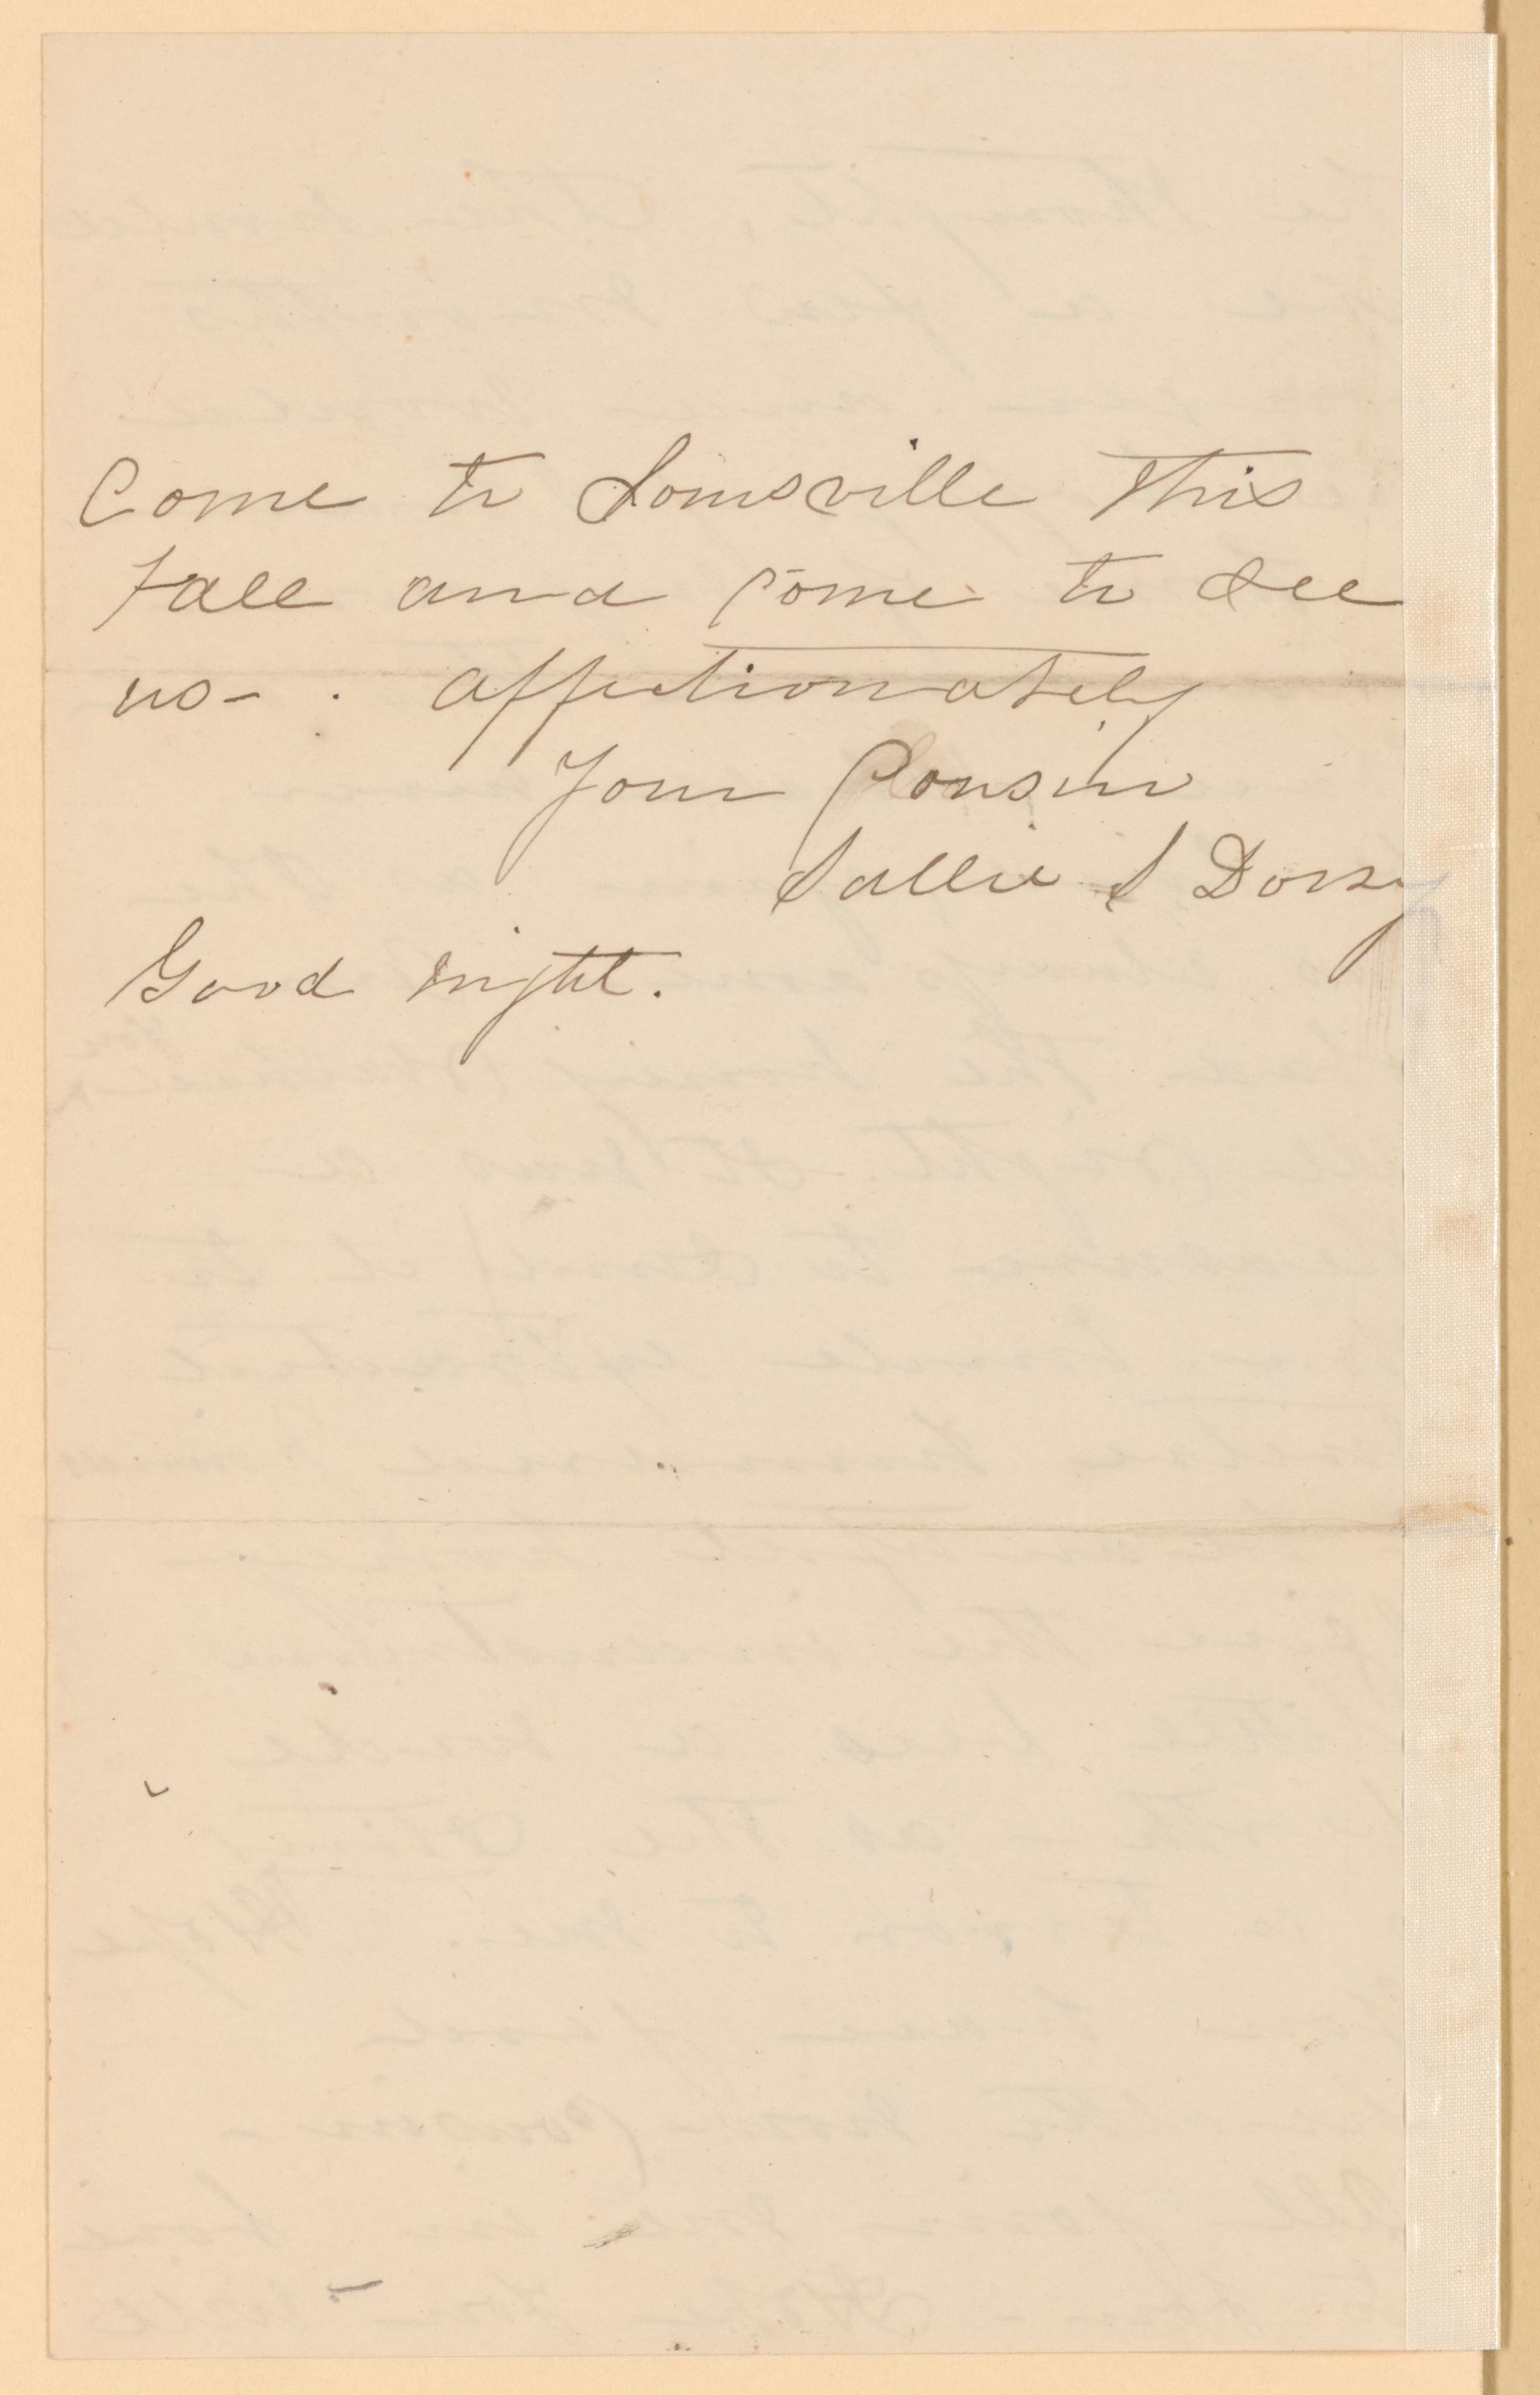 Come to Louisville this
fall and come to see
us - . affectionately
Your Cousin
Sallie S Dorsey
Good night.